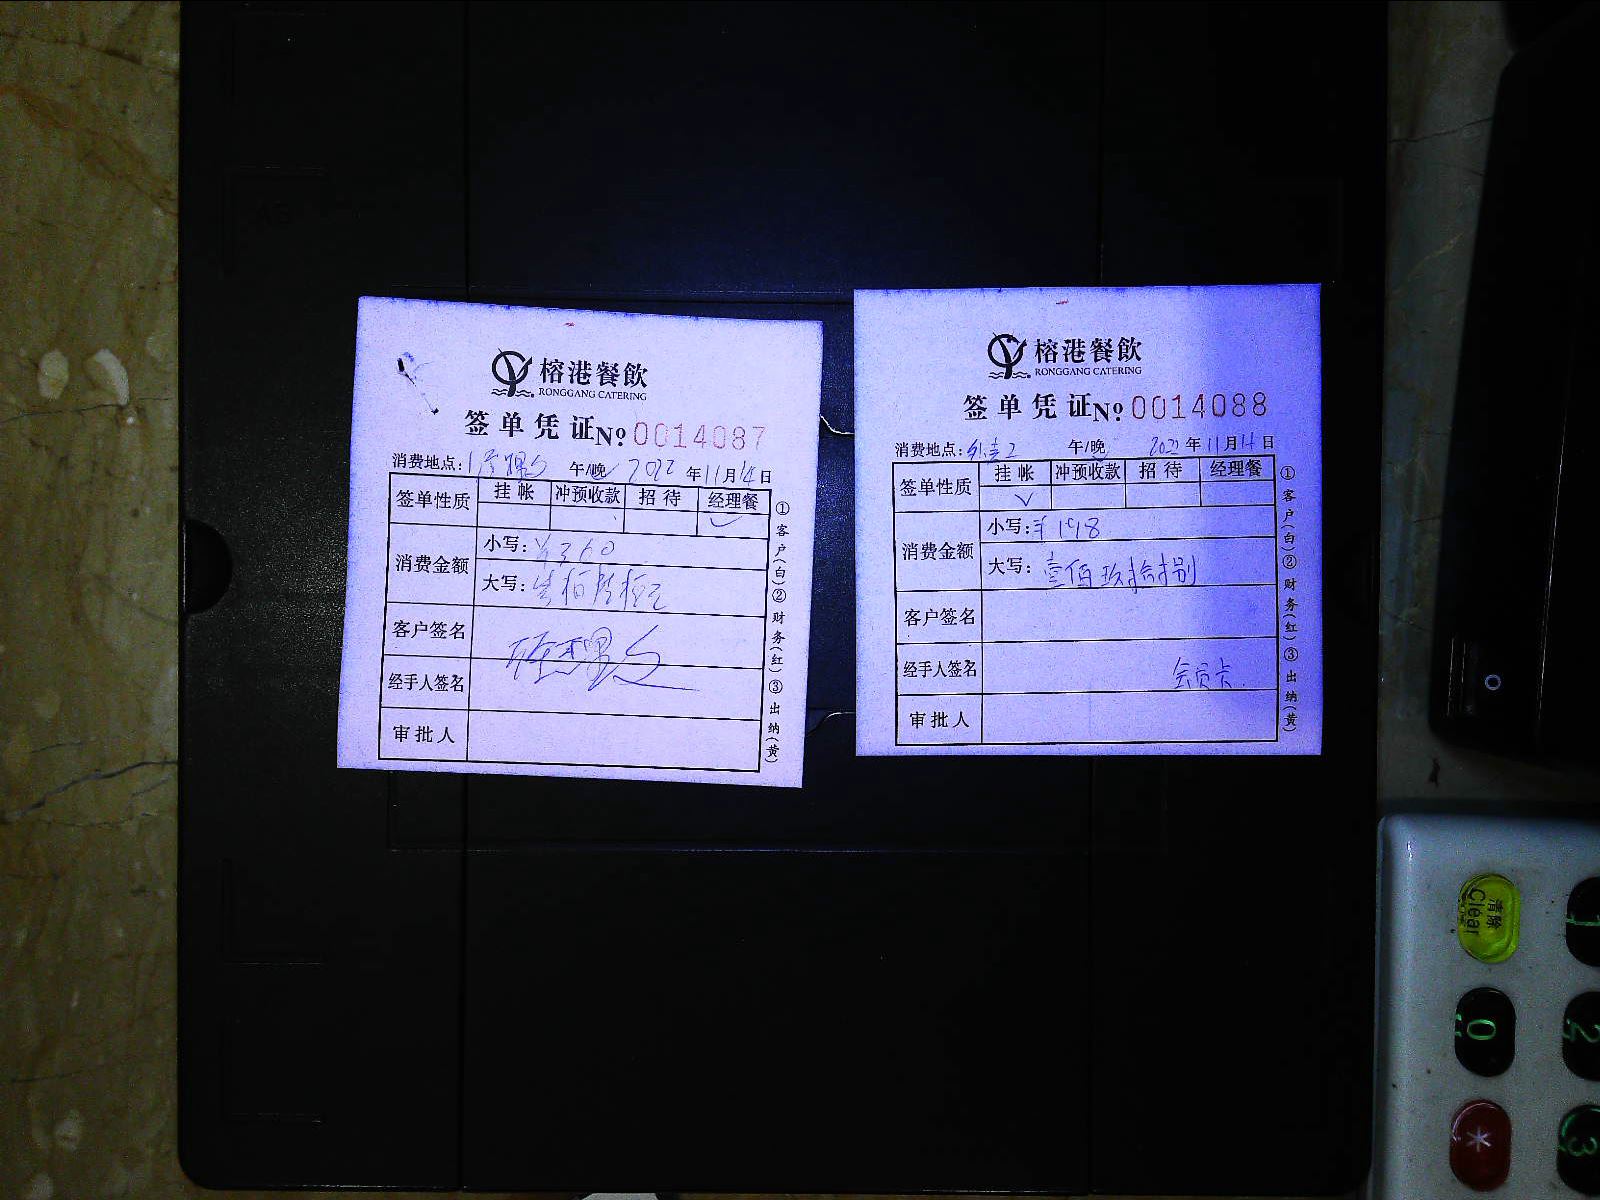 榕港餐飲
RONGGANG CATERING
签单凭证 № 0014087
消费地点: 午/晚 2022年11月14日
签单性质 挂帐 冲预收款 招待 经理餐
✓
消费金额
小写: ¥360
大写:
客户签名
经手人签名
审批人
①客户(白)②财务(红)③出纳(黄)
榕港餐飲
RONGGANG CATERING
签单凭证 № 0014088
消费地点: 午/晚 2022年11月14日
签单性质 挂帐 冲预收款 招待 经理餐
✓
消费金额
小写: ¥198
大写: 壹佰玖拾捌
客户签名
经手人签名 会员卡
审批人
①客户(白)②财务(红)③出纳(黄)
清除
Clear
0
2
*
3